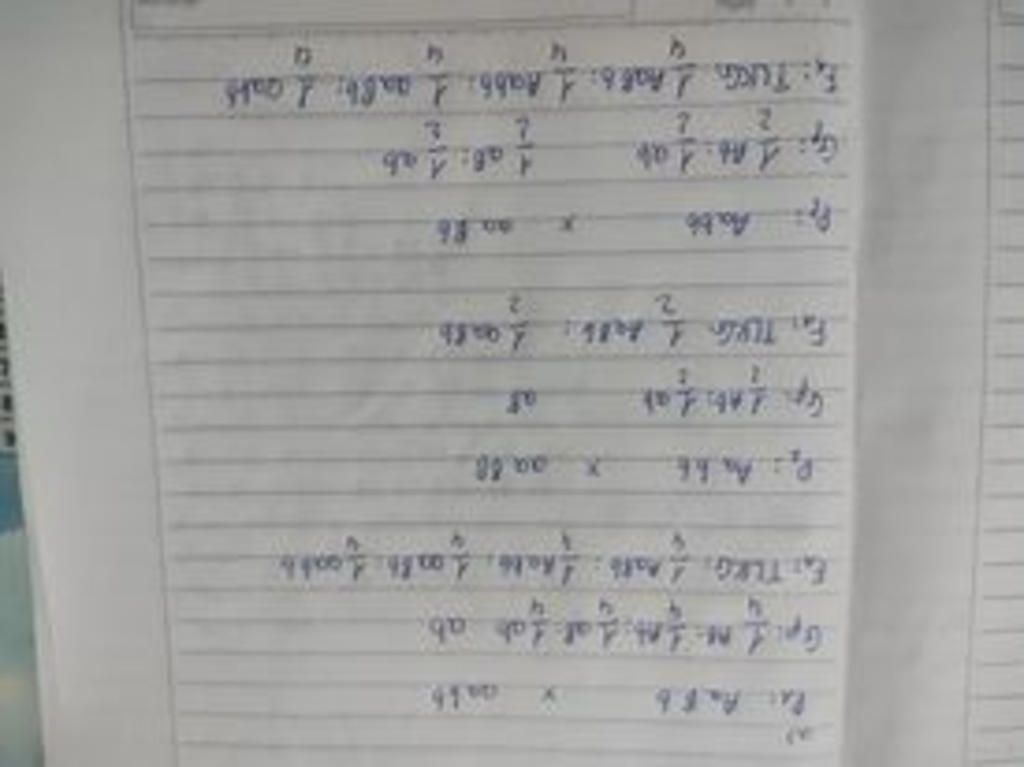 a)
P₁: AaBb × aabb
Gp: 1/4 AB: 1/4 Ab: 1/4 aB: 1/4 ab ab
F₁: TLKG: 1/4 AaBb: 1/4 Aabb: 1/4 aaBb: 1/4 aabb
P₂: Aabb × aaBB
Gp: 1/2 Ab: 1/2 ab aB
F₁: TLKG 1/2 AaBb: 1/2 aaBb
P₃: Aabb × aaBb
Gp: 1/2 Ab: 1/2 ab 1/2 aB: 1/2 ab
F₁: TLKG 1/4 AaBb: 1/4 Aabb: 1/4 aaBb: 1/4 aabb